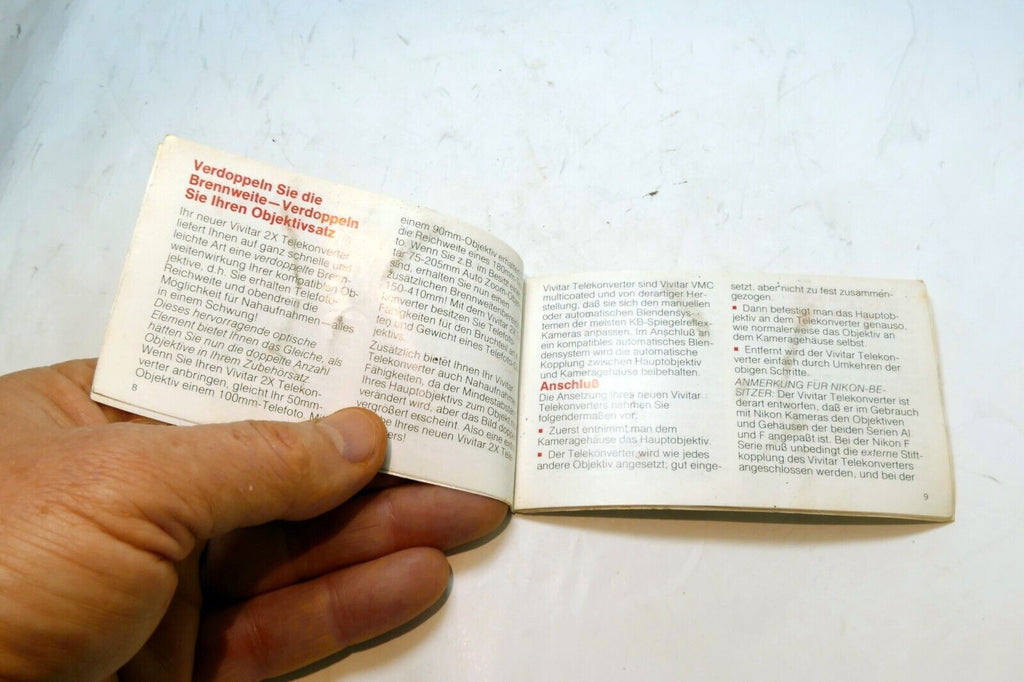 Verdoppeln Sie die
Brennweite—Verdoppeln
Sie Ihren Objektivsatz
Ihr neuer Vivitar 2X Telekonverter
liefert Ihnen auf ganz schnelle und
leichte Art eine verdoppelte Brenn-
weitenwirkung Ihrer kompatiblen Ob-
jektive, d.h. Sie erhalten Telefoto-
Reichweite und obendrein die
Möglichkeit für Nahaufnahmen—alles
in einem Schwung!
Dieses hervorragende optische
Element bietet Ihnen das Gleiche, als
hätten Sie nun die doppelte Anzahl
Objektive in Ihrem Zubehörsatz.
Wenn Sie Ihren Vivitar 2X Telekon-
verter anbringen, gleicht Ihr 50mm-
Objektiv einem 100mm-Telefoto. Mit
8
einem 90mm-Objektiv erhalten
die Reichweite eines 180mm
to. Wenn Sie z.B. im Besitz eines
tar 75-205mm Auto Zoom-Obje
sind, erhalten Sie nun einen
zusätzlichen Brennweitenbereich
150-410mm! Mit dem Vivitar 2X
konverter besitzen Sie Telefoto-
Fähigkeiten für den Bruchteil an
ten und Gewicht eines Telefoto-
jektivs.
Zusätzlich bietet Ihnen Ihr Vivitar
Telekonverter auch Nahaufnahme
Fähigkeiten, da der Mindestabstand
Ihres Hauptobjektivs zum Objekt
verändert wird, aber das Bild doppelt
vergrößert erscheint. Also eine
Ihres neuen Vivitar 2X Tele
ers!
Vivitar Telekonverter sind Vivitar VMC
multicoated und von derartiger Her-
stellung, daß sie sich den manuellen
oder automatischen Blendensys-
temen der meisten KB-Spiegelreflex-
Kameras anpassen. Im Anschluß an
ein kompatibles automatisches Blen-
densystem wird die automatische
Kopplung zwischen Hauptobjektiv
und Kameragehäuse beibehalten.
Anschluß
Die Ansetzung Ihres neuen Vivitar
Telekonverters nehmen Sie
folgendermaßen vor:
▪ Zuerst entnimmt man dem
Kameragehäuse das Hauptobjektiv.
▪ Der Telekonverter wird wie jedes
andere Objektiv angesetzt; gut einge-
setzt, aber nicht zu fest zusammen-
gezogen.
▪ Dann befestigt man das Hauptob-
jektiv an dem Telekonverter genauso,
wie normalerweise das Objektiv an
dem Kameragehäuse selbst.
▪ Entfernt wird der Vivitar Telekon-
verter einfach durch Umkehren der
obigen Schritte.
ANMERKUNG FÜR NIKON-BE-
SITZER: Der Vivitar Telekonverter ist
derart entworfen, daß er im Gebrauch
mit Nikon Kameras den Objektiven
und Gehäusen der beiden Serien AI
und F angepaßt ist. Bei der Nikon F
Serie muß unbedingt die externe Stift-
kopplung des Vivitar Telekonverters
angeschlossen werden, und bei der
9